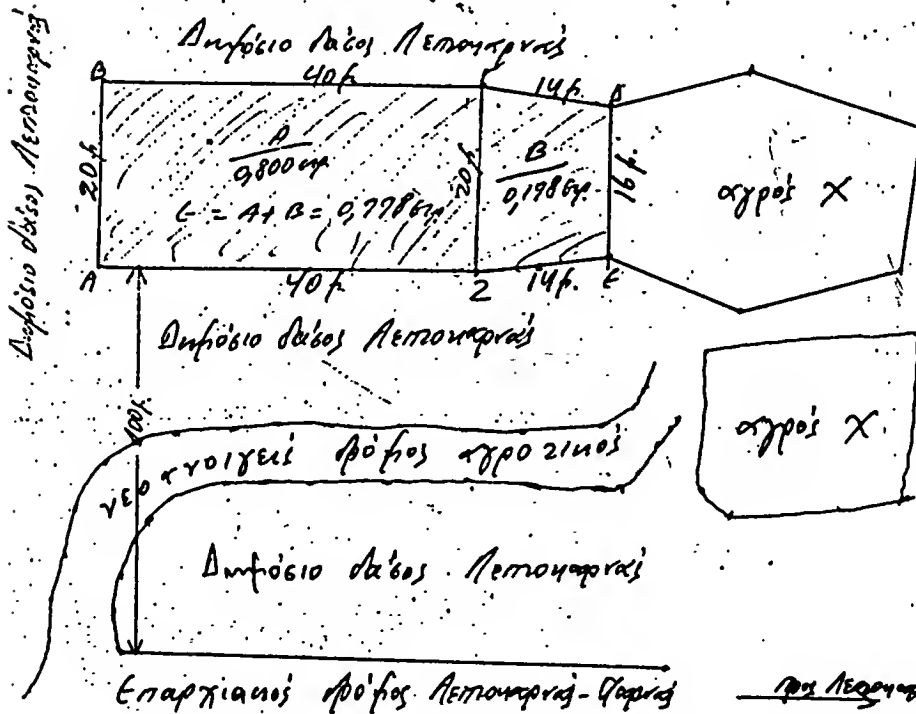 Δημόσιο δάσος Λεπτοκαρυάς
Δημόσιο δάσος Λεπτοκαρυάς
B
40μ.
Γ
14μ.
Δ
20μ.
A
0,800στρ.
Ε = Α+Β = 0,998στρ.
20μ.
B
0,198στρ.
16μ.
αγρός Χ
A
40μ.
Ζ
14μ.
Ε
Δημόσιο δάσος Λεπτοκαρυάς
100μ.
αγρός Χ
νεοανοιγείς δρόμος αγροτικός
Δημόσιο δάσος Λεπτοκαρυάς
Επαρχιακός δρόμος Λεπτοκαρυάς-
προς